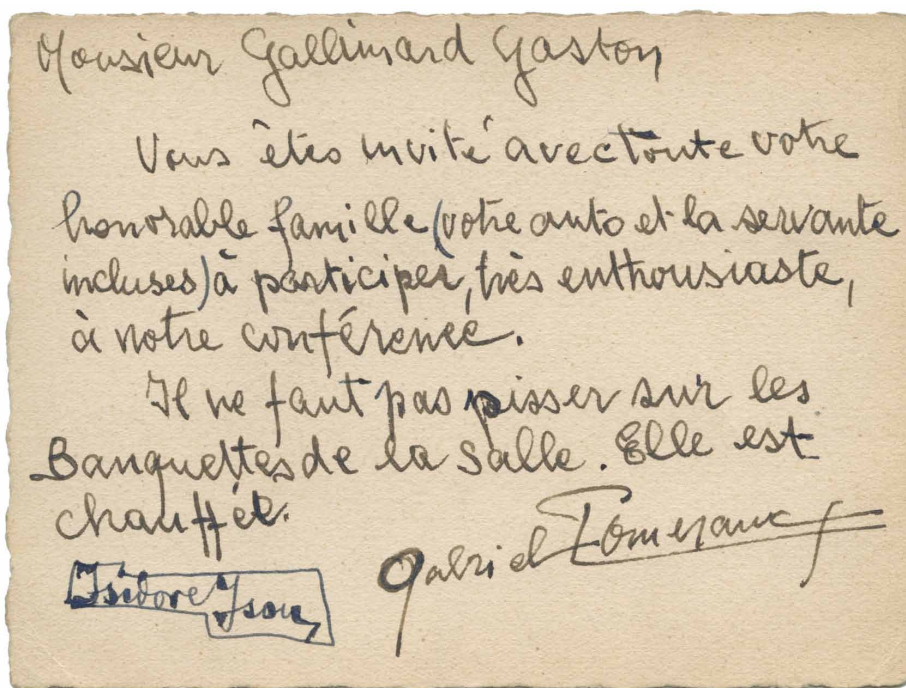 Monsieur Gallimard Gaston
Vous êtes invité avec toute votre
honorable famille (votre auto et la servante
incluses) à participer, très enthousiaste,
à notre conférence.
Il ne faut pas pisser sur les
Banquettes de la Salle. Elle est
chauffée.
Gabriel Pomerand
Isidore Isou